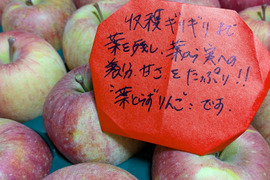 収穫ギリギリまで
葉を残し、葉から実への
養分、甘さをたっぷり!!
"葉とらずりんご"です。